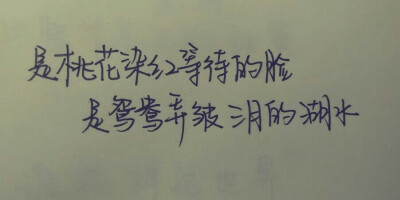 是桃花染红等待的脸
是鸳鸯弄皱三月的湖水